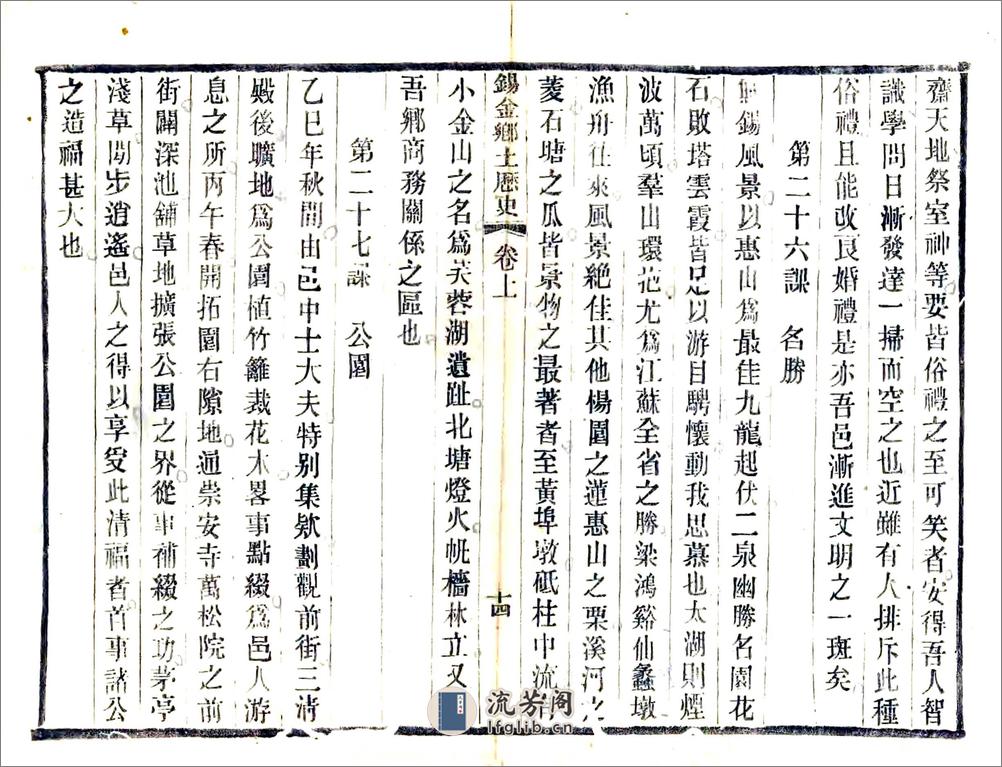 齋天地祭室神等要皆俗禮之至可笑者安得吾人智
識學問日漸發達一掃而空之也近雖有人排斥此種
俗禮且能改良婚禮是亦吾邑漸進文明之一斑矣
第二十六課 名勝
無錫風景以惠山爲最佳九龍起伏二泉幽勝名園花
石敗塔雲霞皆足以游目騁懷動我思慕也太湖則煙
波萬頃羣山環花尤爲江蘇全省之勝梁鴻谿仙蠡墩
漁舟往來風景絶佳其他楊園之蓮惠山之栗溪河之
菱石塘之瓜皆景物之最著者至黃埠墩砥柱中流
錫金鄉土歷史 卷上 十四
小金山之名爲芙蓉湖遺趾北塘燈火帆檣林立又
吾鄉商務關係之區也
第二十七課 公園
乙巳年秋間由邑中士大夫特别集欵劃觀前街三清
殿後曠地爲公園植竹籬栽花木畧事點綴爲邑人游
息之所丙午春開拓園右隙地通崇安寺萬松院之前
街闢深池舖草地擴張公園之界從事補綴之功茅亭
淺草閒步逍遙邑人之得以享受此清福者首事諸公
之造福甚大也
流芳阁
lfglib.cn